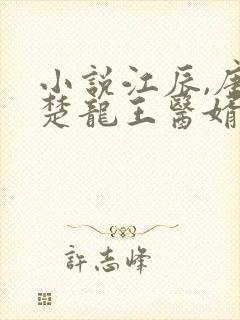 小説江辰,唐
楚龍王醫婿
許志峰